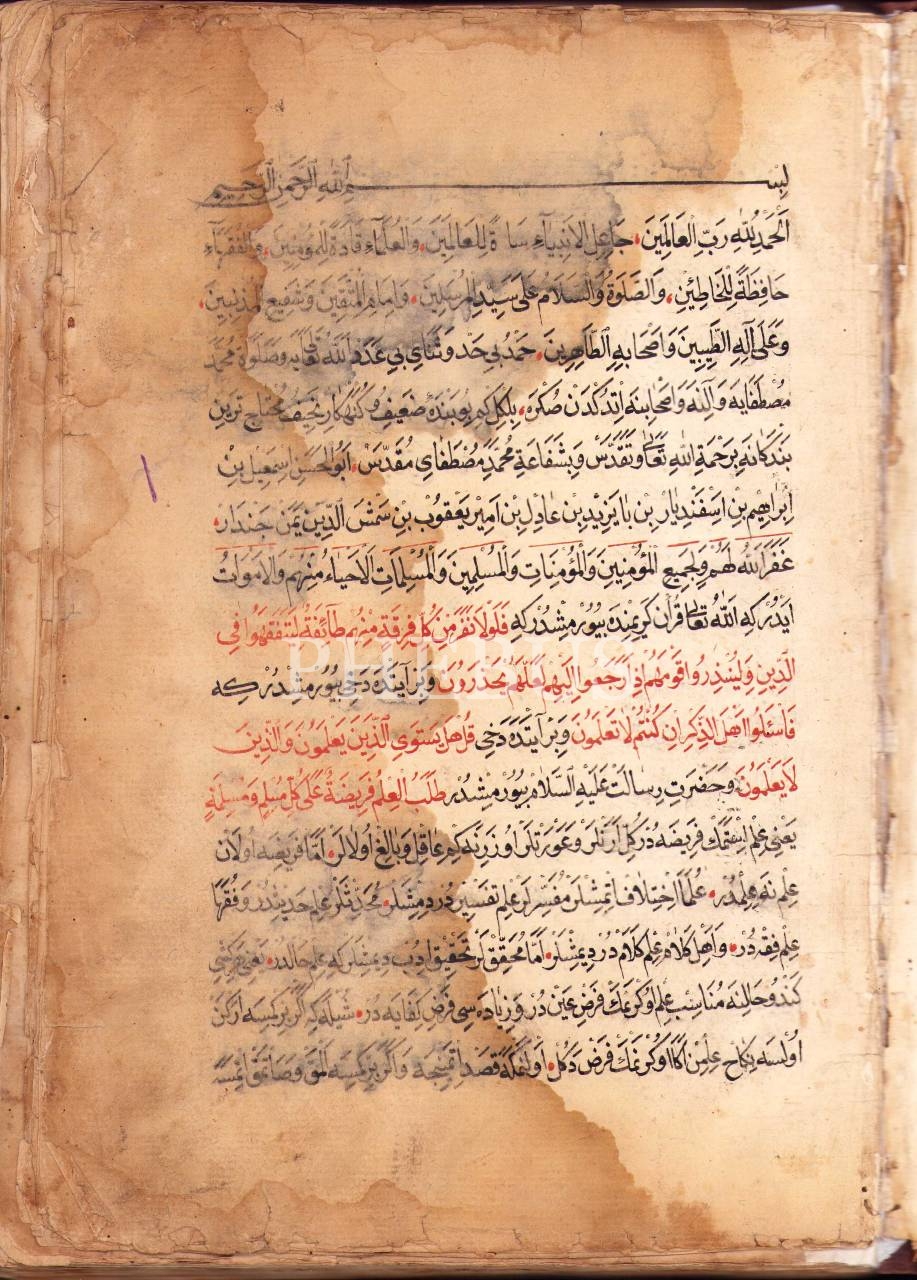 بِسْمِ اللهِ الرَّحْمٰنِ الرَّحِيمِ
اَلْحَمْدُ لِلّٰهِ رَبِّ الْعَالَمِينَ، جَاعِلِ الْاَنْبِيَآءِ سَادَةً لِلْعَالَمِينَ، وَالْعُلَمَاءِ قَادَةً لِلْمُؤْمِنِينَ، وَالْفُقَرَآءِ
حَافِظَةً لِلْخَاطِئِينَ، وَالصَّلَوةُ وَالسَّلَامُ عَلَى سَيِّدِ الْمُرْسَلِينَ، وَاِمَامِ الْمُتَّقِينَ وَشَفِيعِ الْمُذْنِبِينَ،
وَعَلَى آلِهِ الطَّيِّبِينَ وَاَصْحَابِهِ الطَّاهِرِينَ، حَمْدِ بِى حَدْ وَثَنَاىِ بِى عَدَدْ اللهُ تَعَالَى يَه وَصَلَوةْ مُحَمَّدِ
مُصْطَفَايَه وَآلِنَه وَاَصْحَابِنَه اِتْدُكْدَنْ صُكْرَه، بِلْكِلْ كِمْ بُو بَنْدَهٔ ضَعِيفْ وُ كُنَهْكَارِ نَحِيفْ مُحْتَاجْ تَرِينِ
بَنْدَكَانْ بَرَحْمَةِ اللهِ تَعَالَى وَتَقَدَّسْ وَبِشَفَاعَةِ مُحَمَّدِ مُصْطَفَاىِ مُقَدَّسْ، اَبُو الْحَسَنِ اِسْمَعِيلْ بِنْ
اِبْرَاهِيمْ بِنِ اِسْفَنْدِيَارْ بِنْ بَايَزِيدِ بِنِ عَادِلْ بِنِ اَمِيرْ يَعْقُوبْ بِنِ شَمْسَ الدِّينِ يَمَنْ جَنْدَارْ،
غَفَرَ اللهُ لَهُمْ وَلِجَمِيعِ الْمُؤْمِنِينَ وَالْمُؤْمِنَاتِ وَالْمُسْلِمِينَ وَالْمُسْلِمَاتِ الْاَحْيَاءِ مِنْهُمْ وَالْاَمْوَاتْ
اَيْدُرْ كِه اَللهُ تَعَالَى قُرْآنِ كَرِيمِنْدَه بُيُورْمِشْدُرْ كِه فَلَوْلَا نَفَرَ مِنْ كُلِّ فِرْقَةٍ مِنْهُمْ طَآئِفَةٌ لِيَتَفَقَّهُوا فِى
الدِّينِ وَلِيُنْذِرُوا قَوْمَهُمْ اِذَا رَجَعُوا اِلَيْهِمْ لَعَلَّهُمْ يَحْذَرُونَ وَبِرْ آيَتْدَه دَخِى بُيُورْمِشْدُرْ كِه
فَاسْئَلُوا اَهْلَ الذِّكْرِ اِنْ كُنْتُمْ لَا تَعْلَمُونَ وَبِرْ آيَتْدَه دَخِى قُلْ هَلْ يَسْتَوِى الَّذِينَ يَعْلَمُونَ وَالَّذِينَ
لَا يَعْلَمُونَ وَحَضْرَتِ رِسَالَتْ عَلَيْهِ السَّلَامْ بُيُورْمِشْدُرْ طَلَبُ الْعِلْمِ فَرِيضَةٌ عَلَى كُلِّ مُسْلِمٍ وَمُسْلِمَةٍ
يَعْنِى عِلِمْ اِسْتَمَكْ فَرِيضَه دُرْ كُلِّ اَرَنْلَرْ وَعَوْرَتْلَرْ اُوزَرِنَه كِمْ عَاقِلْ وَبَالِغْ اُولَالَرْ، اَمَّا فَرِيضَه اُولَانْ
عِلِمْ نَه عِلِمْدُرْ، عُلَمَا اِخْتِلَافْ اِتْمِشْلَرْ مُفَسِّرْلَرْ عِلْمِ تَفْسِيرْدُرْ دِمِشْلَرْ، مُحَدِّثْلَرْ عِلْمِ حَدِيثْدُرْ وَفُقَهَا
عِلْمِ فِقْهْدُرْ، وَاَهْلِ كَلَامْ عِلْمِ كَلَامْدُرْ دِيمِشْلَرْ، اَمَّا مُحَقِّقْلَرْ تَحْقِيقْ اِدُبْ دِيمِشْلَرْ كِه عِلْمِ حَالْدُرْ، يَعْنِى هَرْ كِشِى
كَنْدُو حَالِنَه مُنَاسِبْ عِلِمْ اُوكْرَنْمَكْ فَرْضِ عَيْنْ دُرْ وَزِيَادَه سِى فَرْضِ كِفَايَه دُرْ، شُيلَه كِه اَكَرْ بِرْ كِمْسَه اَرْكَنْ
اُولْسَه نِكَاحْ عِلْمِنْ اَكَا اُوكْرَنْمَكْ فَرْضْ دَكُلْ، اَوْلَنْمَكَه قَصْدْ اِتْمَيِنْجَه وَاَكَرْ بِرْ كِمْسَه آلْمَقْ وَصَاتْمَقْ اِتْمَسَه